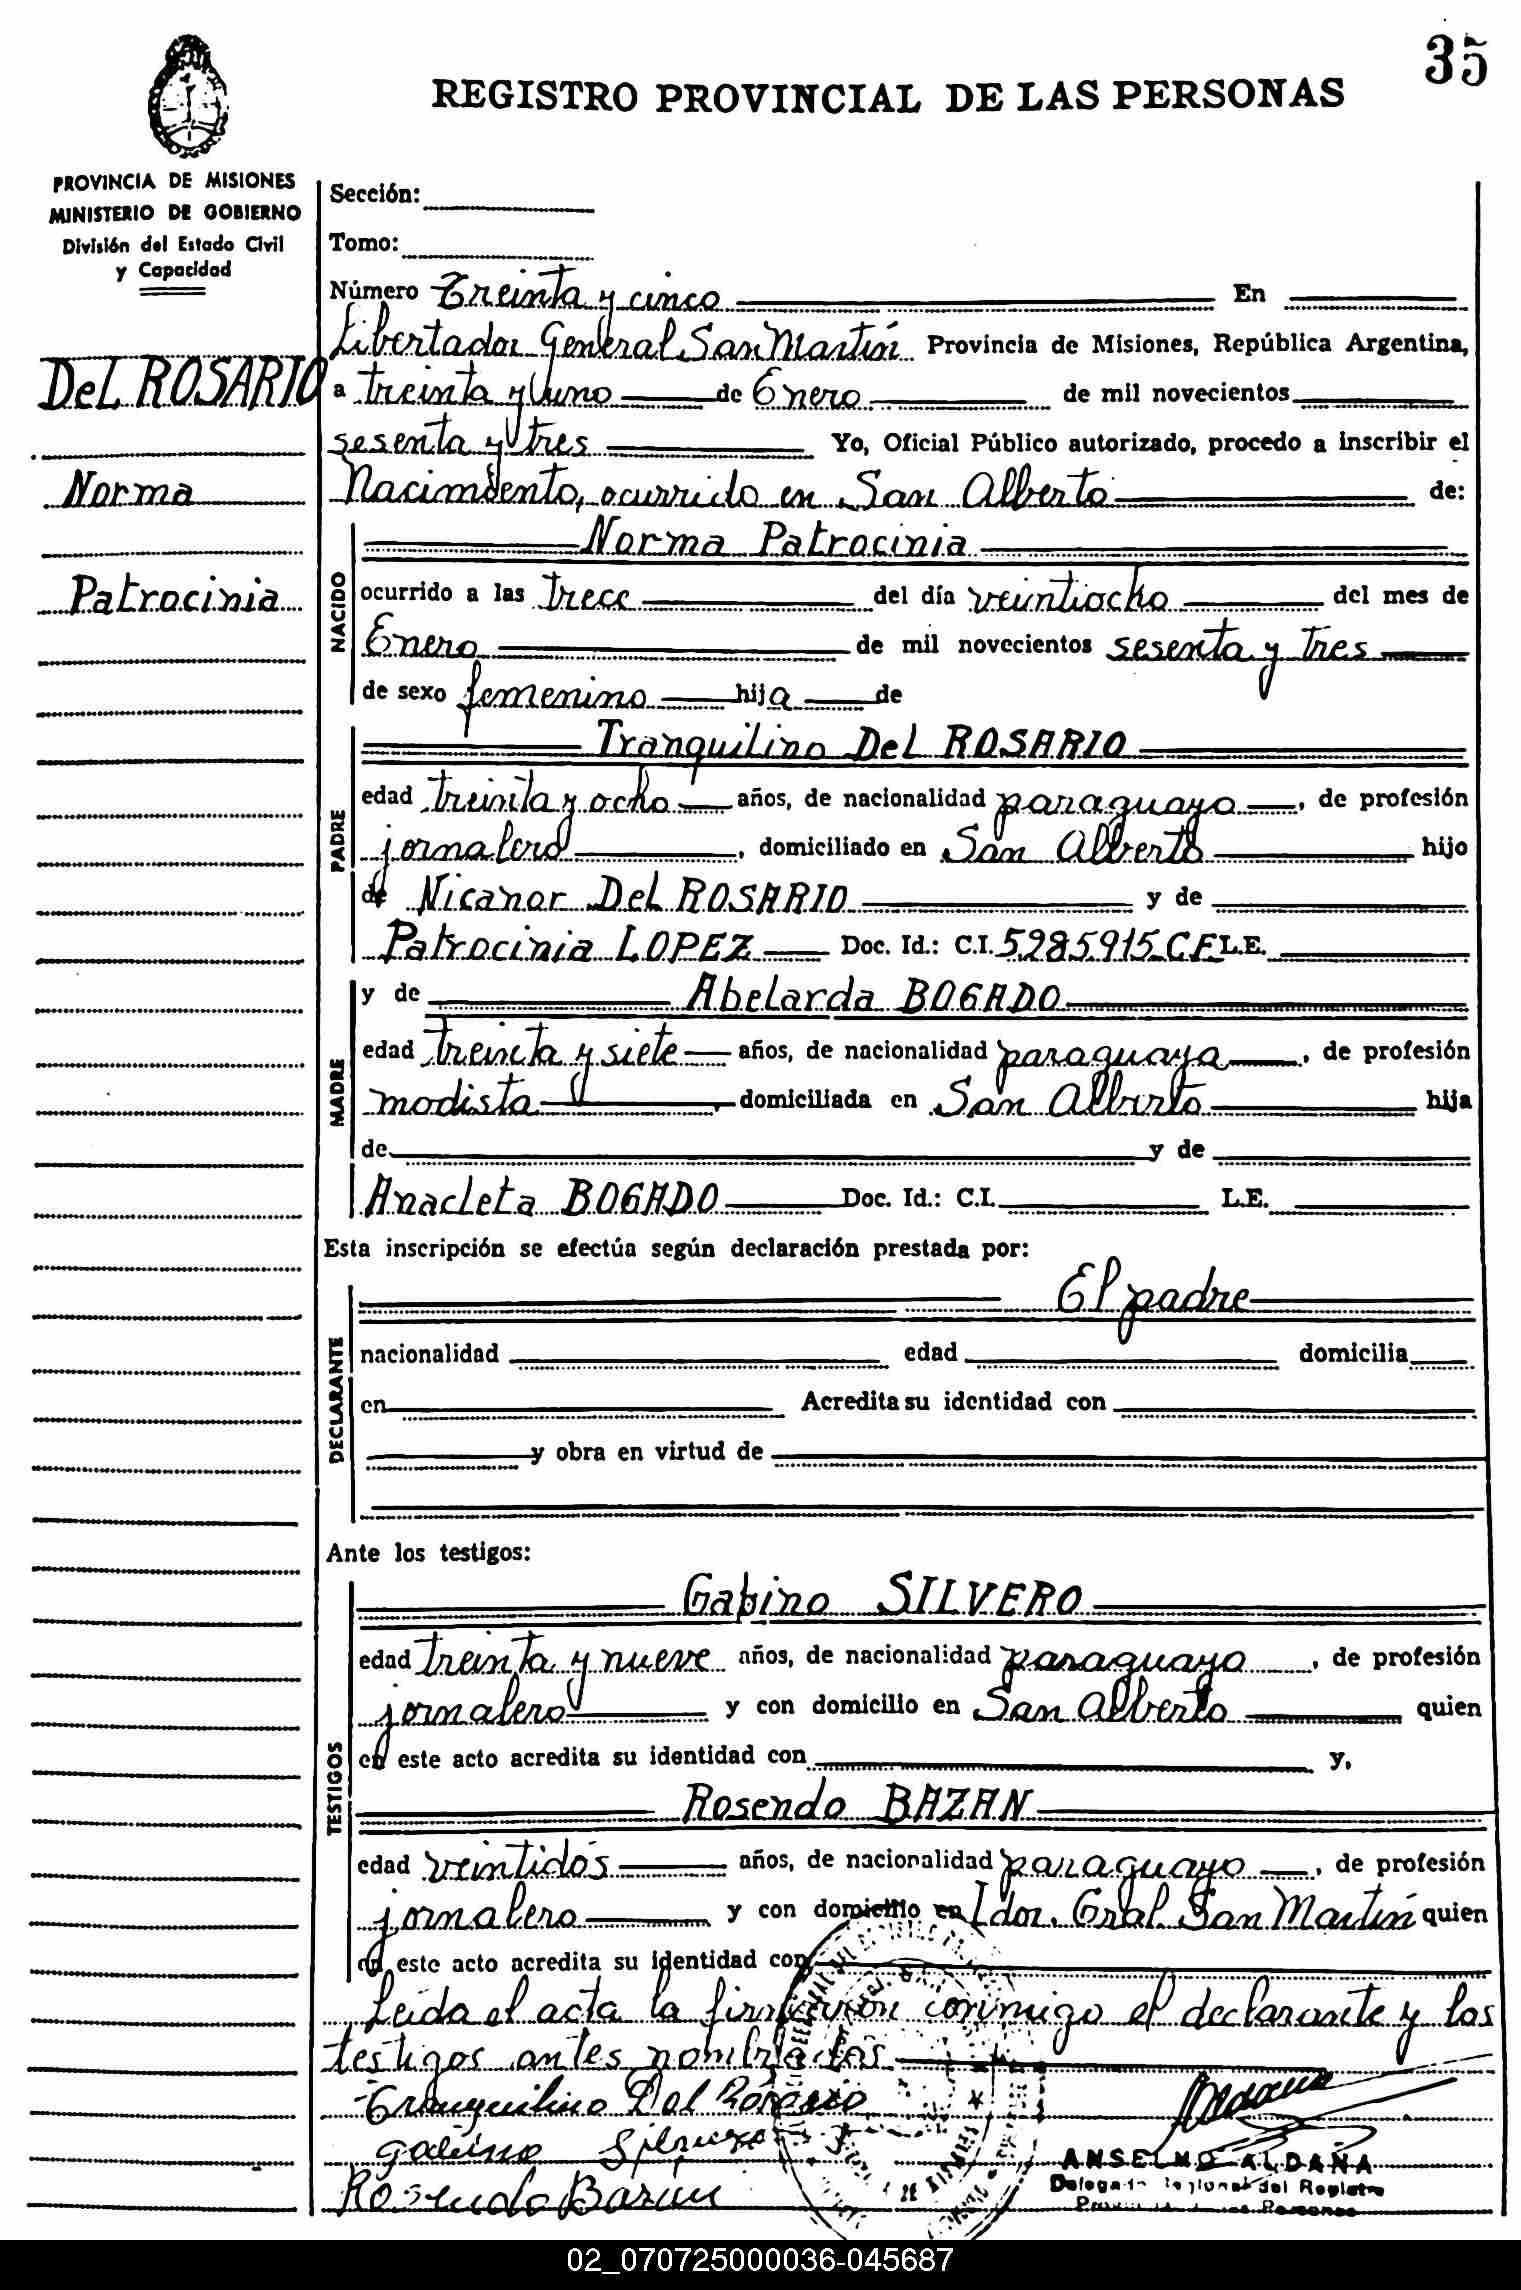 35
REGISTRO PROVINCIAL DE LAS PERSONAS
PROVINCIA DE MISIONES
MINISTERIO DE GOBIERNO
División del Estado Civil
y Capacidad
Del ROSARIO
Norma
Patrocinia
Sección:
Tomo:
Número Treinta y cinco En
Libertador General San Martín Provincia de Misiones, República Argentina,
a treinta y uno de Enero de mil novecientos
sesenta y tres Yo, Oficial Público autorizado, procedo a inscribir el
Nacimiento, ocurrido en San Alberto de:
NACIDO
Norma Patrocinia
ocurrido a las trece del día veintiocho del mes de
Enero de mil novecientos sesenta y tres
de sexo femenino hija de
PADRE
Tranquilino Del ROSARIO
edad treinta y ocho años, de nacionalidad paraguayo, de profesión
jornalero, domiciliado en San Alberto hijo
de Nicanor Del ROSARIO y de
Patrocinia LOPEZ Doc. Id.: C.I. 5285915 C.F. L.E.
MADRE
y de Abelarda BOGADO
edad treinta y siete años, de nacionalidad paraguaya, de profesión
modista, domiciliada en San Alberto hija
de y de
Anacleta BOGADO Doc. Id.: C.I. L.E.
Esta inscripción se efectúa según declaración prestada por:
DECLARANTE
El padre
nacionalidad edad domicilia
en Acredita su identidad con
y obra en virtud de
Ante los testigos:
TESTIGOS
Gabino SILVERO
edad treinta y nueve años, de nacionalidad paraguayo, de profesión
jornalero y con domicilio en San Alberto quien
en este acto acredita su identidad con y,
Rosendo BAZAN
edad veintidós años, de nacionalidad paraguayo, de profesión
jornalero y con domicilio en Ldor. Gral. San Martín quien
en este acto acredita su identidad con
Leída el acta la firmaron conmigo el declarante y los
testigos antes nombrados
Tranquilino Del Rosario
Gabino Silvero
Rosendo Bazán
ANSELMO ALDAÑA
Delegado Regional del Registro
Provincial de las Personas
02_070725000036-045687